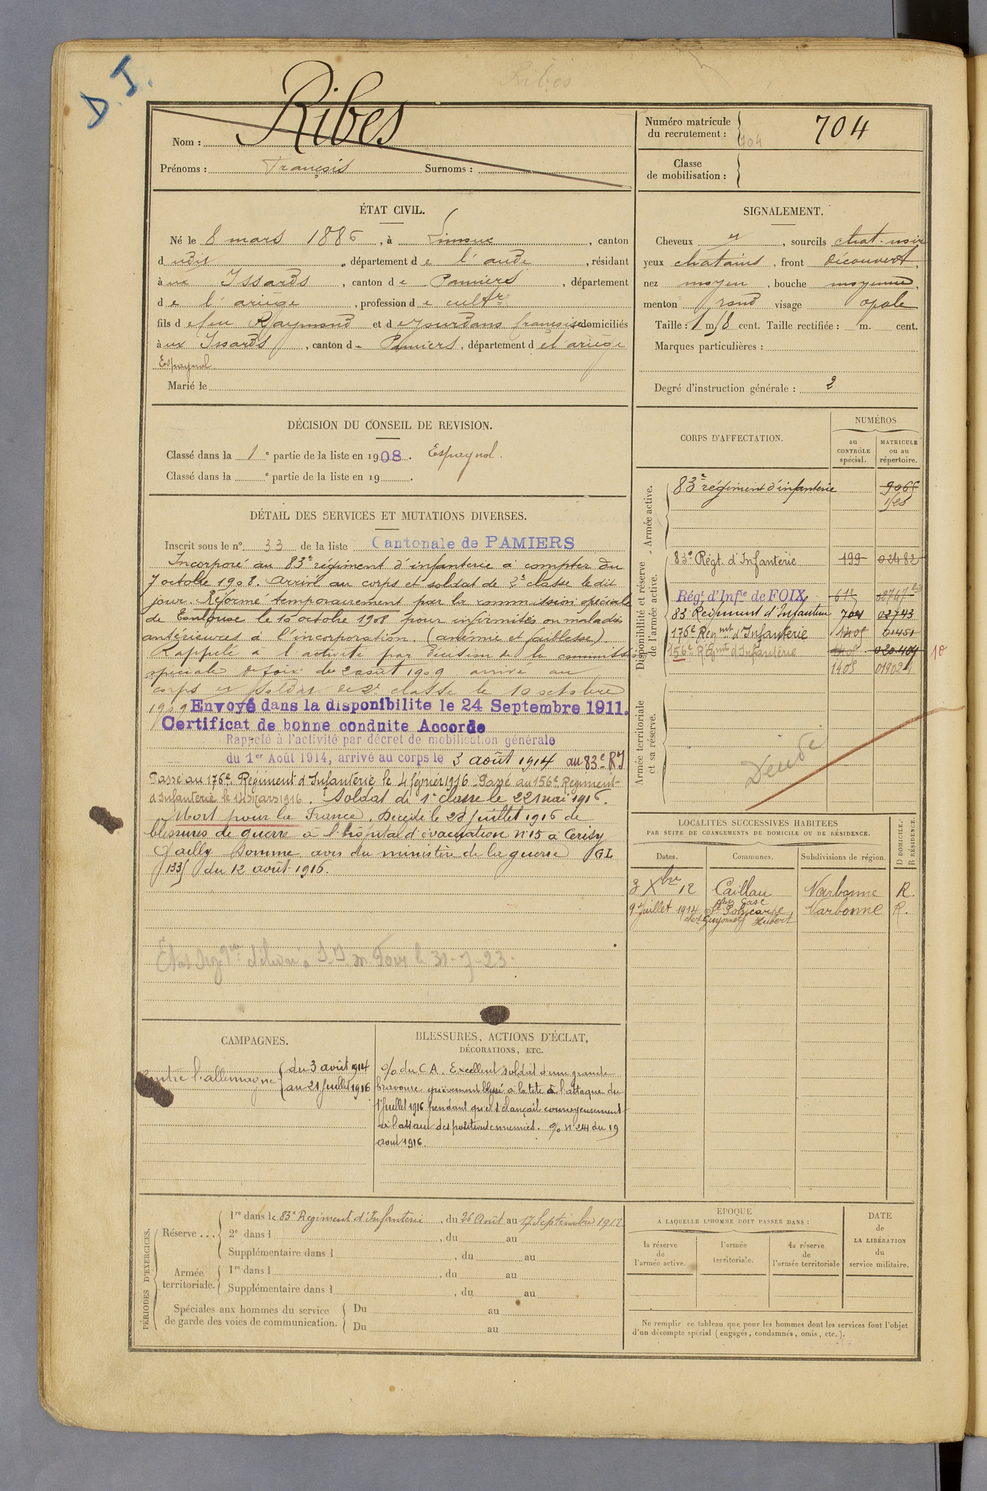 D. I.
Ribes
Nom : Ribes
Prénoms : François Surnoms :
Numéro matricule du recrutement : 704
704
Classe de mobilisation :
ÉTAT CIVIL.
Né le 8 mars 1886, à Limoux, canton
dudit, département de l'aude, résidant
à ux Issards, canton de Pamiers, département
de l'ariège, profession de cultr
fils de feu Raymond et de Jourdans françoise domiciliés
à ux Issards, canton d Pamiers, département de l ariège
Espagnol
Marié le
SIGNALEMENT.
Cheveux et, sourcils chat. noir
yeux chatains, front découvert,
nez moyen, bouche moyenne,
menton rond visage ovale
Taille : 1 m. 58 cent. Taille rectifiée : m. cent.
Marques particulières :
Degré d'instruction générale : 2
DÉCISION DU CONSEIL DE REVISION.
Classé dans la 1e partie de la liste en 1908. Espagnol.
Classé dans la e partie de la liste en 19 .
DÉTAIL DES SERVICES ET MUTATIONS DIVERSES.
Inscrit sous le n° 33 de la liste Cantonale de PAMIERS
Incorporé au 83e régiment d'infanterie à compter du
7 octobre 1908. Arrivé au corps et soldat de 2e classe le dit
jour. Réformé temporairement par la commission spéciale
de Toulouse le 10 octobre 1908 pour infirmités ou maladies
antérieures à l'incorporation. (anémie et faiblesse)
Rappelé à l'activité par décision de la commission
spéciale de foix du 2 août 1909 arrivé au
corps et soldat de 2e classe le 10 octobre
1909 Envoyé dans la disponibilite le 24 Septembre 1911.
Certificat de bonne conduite Accorde
Rappelé à l'activité par décret de mobilisation générale
du 1er Août 1914, arrivé au corps le 3 août 1914 au 83e RI
Passé au 176e Régiment d'Infanterie le 4 février 1916. Passé au 156e Régiment
d'Infanterie le 14 mars 1916. Soldat de 1e classe le 22 mai 1916.
Mort pour la France. Décédé le 21 juillet 1916 de
blessures de guerre à l'hôpital d'évacuation n° 15 à Cerisy
Gailly Somme avis du ministère de la guerre GL
133 du 12 août 1916.
31-7-23.
CORPS D'AFFECTATION.
NUMÉROS
au CONTRÔLE spécial.
MATRICULE ou au répertoire.
Armée active.
83e régiment d'infanterie 9066
Disponibilité et réserve de l'armée active.
83e Régt. d'Infanterie 199 02482
Rég. d'Infie de FOIX 615
83 Régiment d'Infanterie 704 02743
176e Regmnt d'Infanterie 1408 01451
156e Régmt d'Infanterie 020404
1408
10
Armée territoriale et sa réserve.
Décédé
LOCALITÉS SUCCESSIVES HABITÉES
PAR SUITE DE CHANGEMENTS DE DOMICILE OU DE RÉSIDENCE.
Dates. Communes. Subdivisions de région. D DOMICILE. R RÉSIDENCE.
3 Xbre 12 Caillau Narbonne R.
9 juillet 1914 St Polycarpe Narbonne R.
chez Guyonnet Hubert
CAMPAGNES.
Contre l'allemagne du 3 août 1914
au 21 juillet 1916
BLESSURES, ACTIONS D'ÉCLAT,
DÉCORATIONS, ETC.
% du C.A. Excellent soldat d'une grande
bravoure grièvement blessé à la tête à l'attaque du
1er juillet 1916 pendant qu'il s'élançait courageusement
à l'assaut des positions ennemies. % n° 24 du 19
août 1916.
PÉRIODES D'EXERCICES.
Réserve... 1re dans le 83e Régiment d'Infanterie, du 26 Août au 17 Septembre 1912
2e dans l , du au
Supplémentaire dans l , du au
Armée territoriale. 1re dans l , du au
Supplémentaire dans l , du au
Spéciales aux hommes du service de garde des voies de communication. Du au
Du au
ÉPOQUE
A LAQUELLE L'HOMME DOIT PASSER DANS :
la réserve de l'armée active. l'armée territoriale. la réserve de l'armée territoriale
DATE de LA LIBÉRATION du service militaire.
Ne remplir ce tableau que pour les hommes dont les services font l'objet
d'un décompte spécial (engagés, condamnés, omis, etc.).